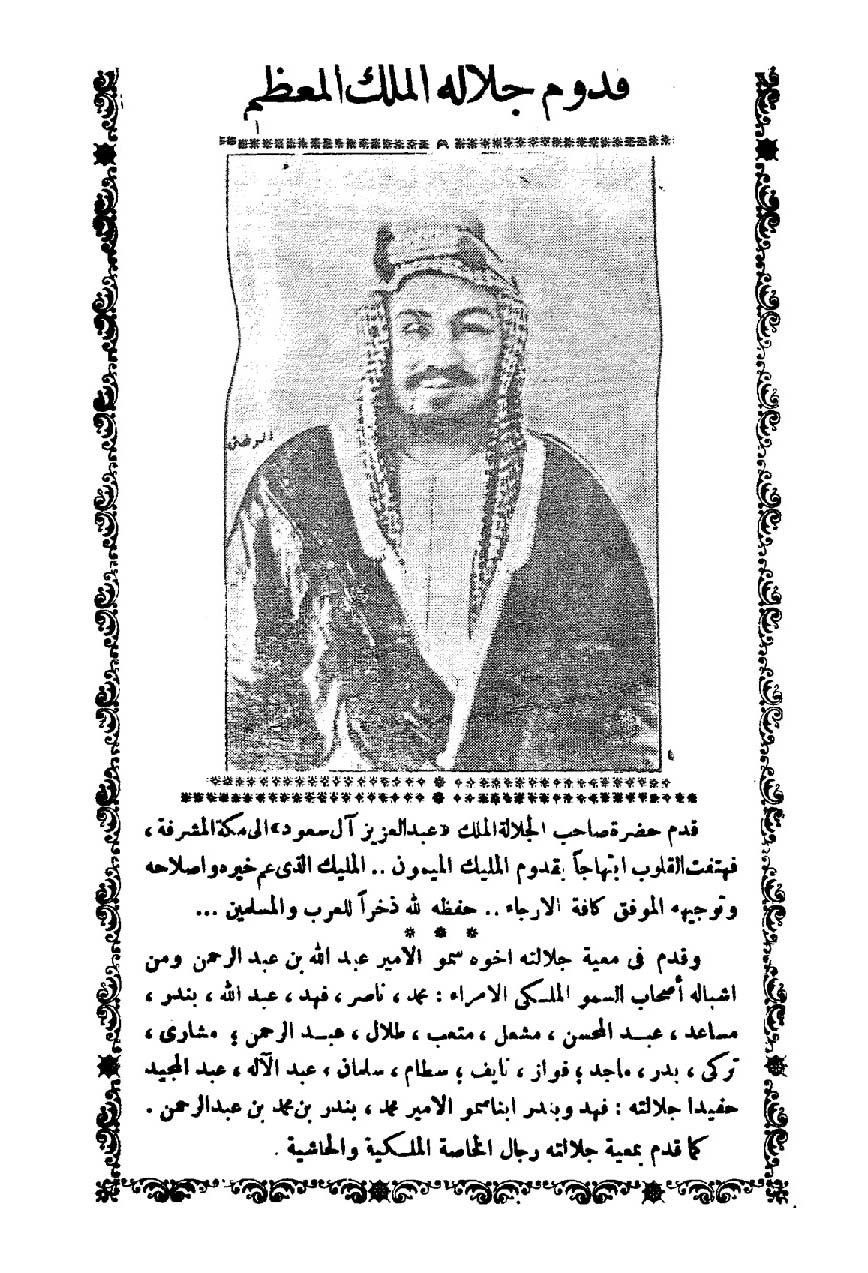 قدوم جلالة الملك المعظم
الرضى
قدم حضرة صاحب الجلالة الملك «عبد العزيز آل سعود» الى مكة المشرفة ،
فهتفت القلوب ابتهاجاً بقدوم المليك الميمون .. المليك الذى عم خيره واصلاحه
وتوجيهه الموفق كافة الارجاء .. حفظه لله ذخراً للعرب والمسلمين ...
وقدم فى معية جلالته اخوه سمو الامير عبد الله بن عبد الرحمن ومن
اشباله أصحاب السمو الملكى الامراء : محمد ، ناصر ، فهد ، عبد الله ، بندر ،
مساعد ، عبد المحسن ، مشعل ، متعب ، طلال ، عبد الرحمن ، مشارى ،
تركى ، بدر ، ماجد ، فواز ، نايف ، سطام ، سلمان ، عبد الآله ، عبد المجيد
حفيدا جلالته : فهد وبندر ابنا سمو الامير محمد ، بندر بن محمد بن عبد الرحمن .
كما قدم بمعية جلالته رجال الخاصة الملكية والحاشية .